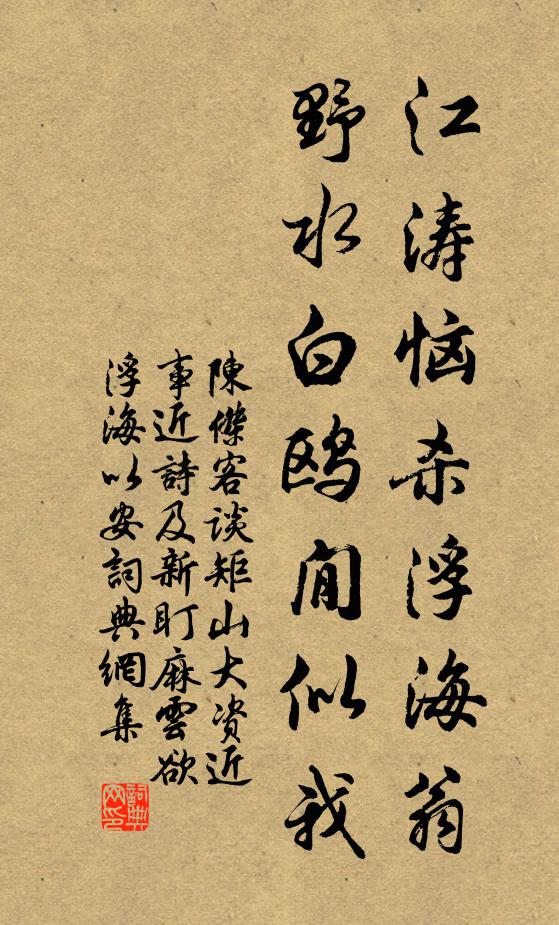 江涛恼杀浮海翁
野水白鸥闲似我
陳傑客谈矩山大资近
事近詩及新盯麻雲欲
浮海以安詞典網集
詞典网印